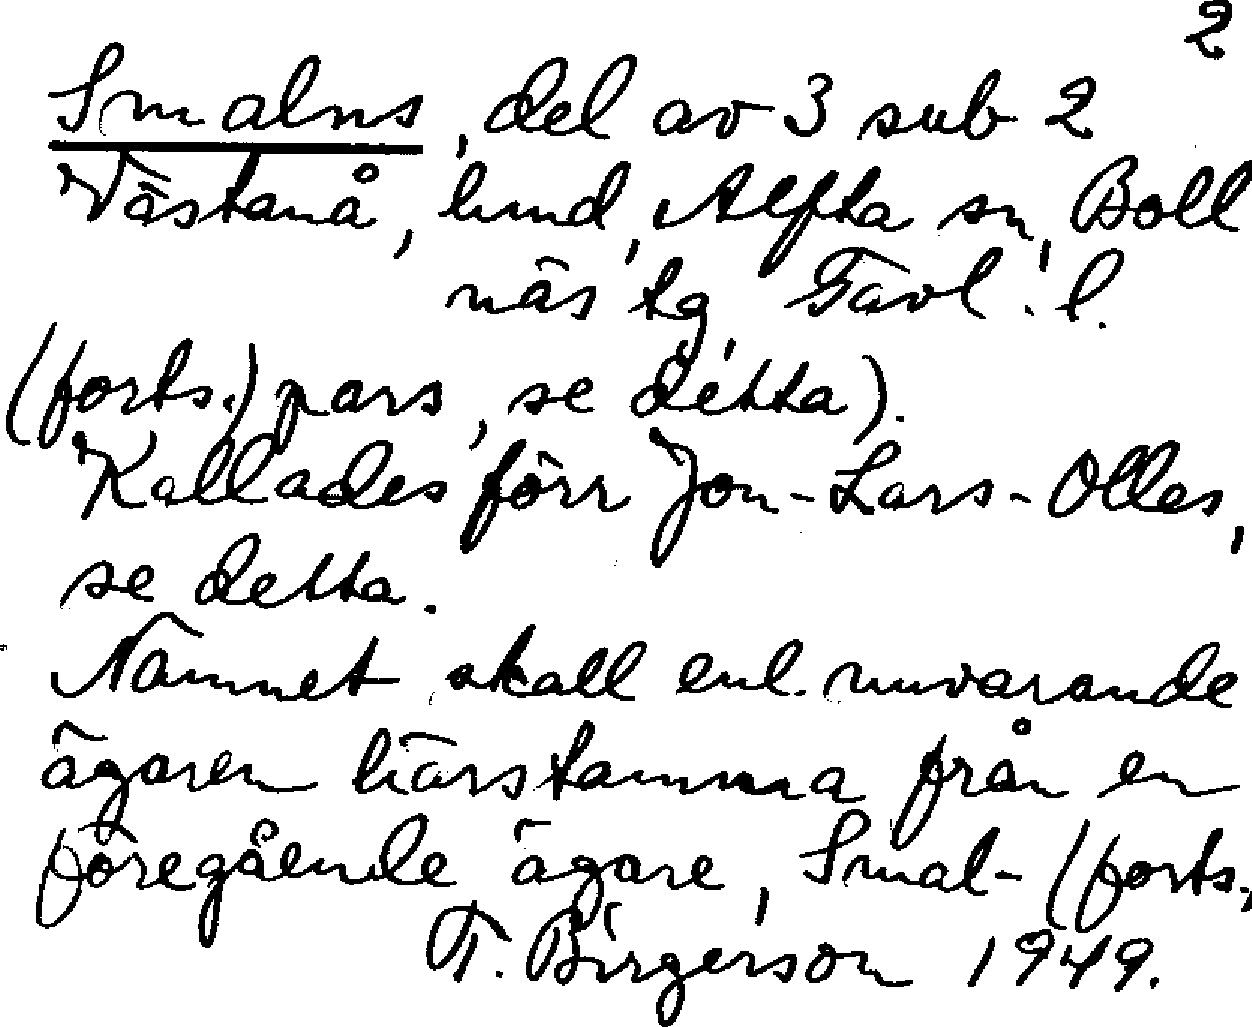 2
Smalns, del av 3 sub 2
Västanå, lund, Alfta sn, Boll
näs tg, Gävl. l.
(forts.) pars, se detta).
Kallades förr Jon-Lars-Olles,
se detta.
Namnet skall enl. nuvarande
ägaren härstamma från en
föregående ägare, Smal- (forts.
T. Birgerson 1949.